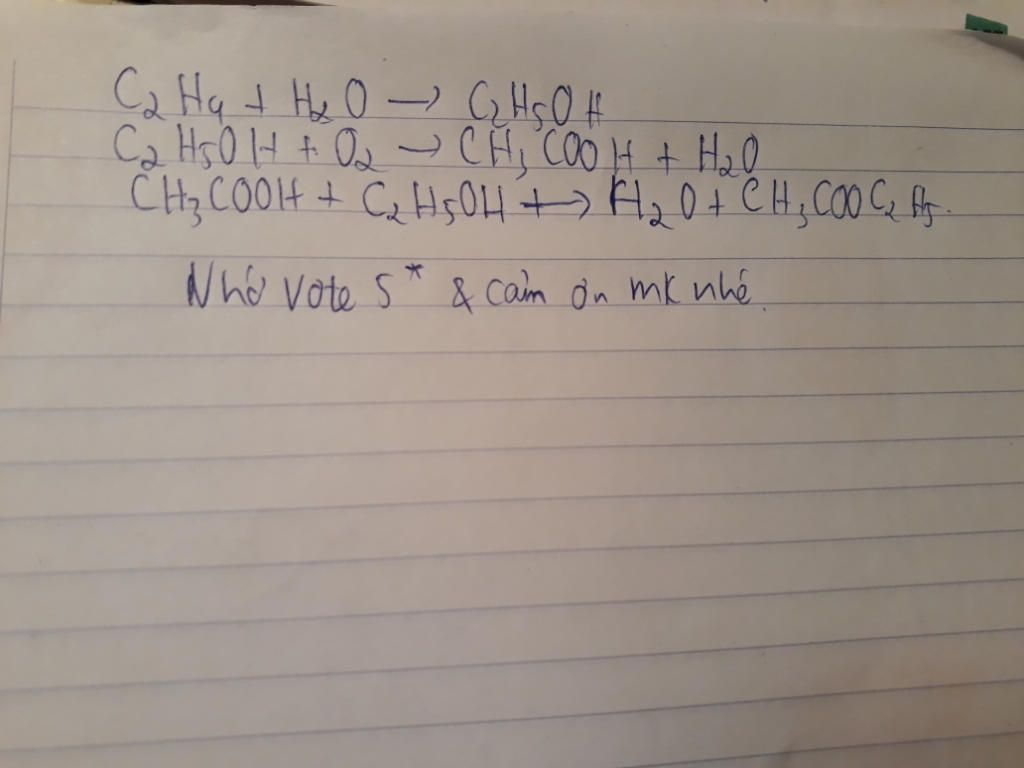 C₂H₄ + H₂O → C₂H₅OH
C₂H₅OH + O₂ → CH₃COOH + H₂O
CH₃COOH + C₂H₅OH → H₂O + CH₃COOC₂H₅.
Nhớ vote 5* & cảm ơn mk nhé.